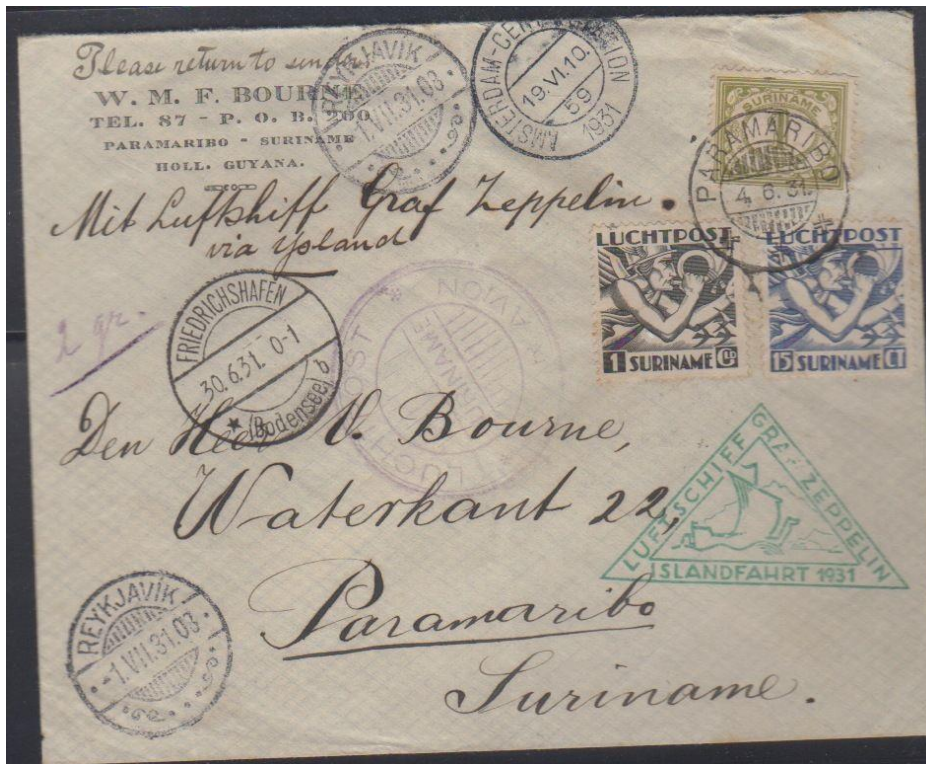 Please return to sender
W. M. F. BOURNE
TEL. 87 - P. O. B. 200
PARAMARIBO - SURINAME
HOLL. GUYANA.
REYKJAVÍK
1.VII.31.03
AMSTERDAM-CENTRAALSTATION
19.VI.10
59
1931
SURINAME
PARAMARIBO
4. 6. 31.
Mit Luftshiff Graf Zeppelin.
via Ysland
LUCHTPOST
1 SURINAME Ct
LUCHTPOST
15 SURINAME CT
2 gr.
FRIEDRICHSHAFEN
30.6.31. 0-1
★ (Bodensee) b
LUCHTPOST
AVION
SURINAME
Den Heer V. Bourne,
Waterkant 22,
Paramaribo
Suriname.
LUFTSCHIFF GRAF ZEPPELIN
ISLANDFAHRT 1931
REYKJAVÍK
-1.VII.31.03